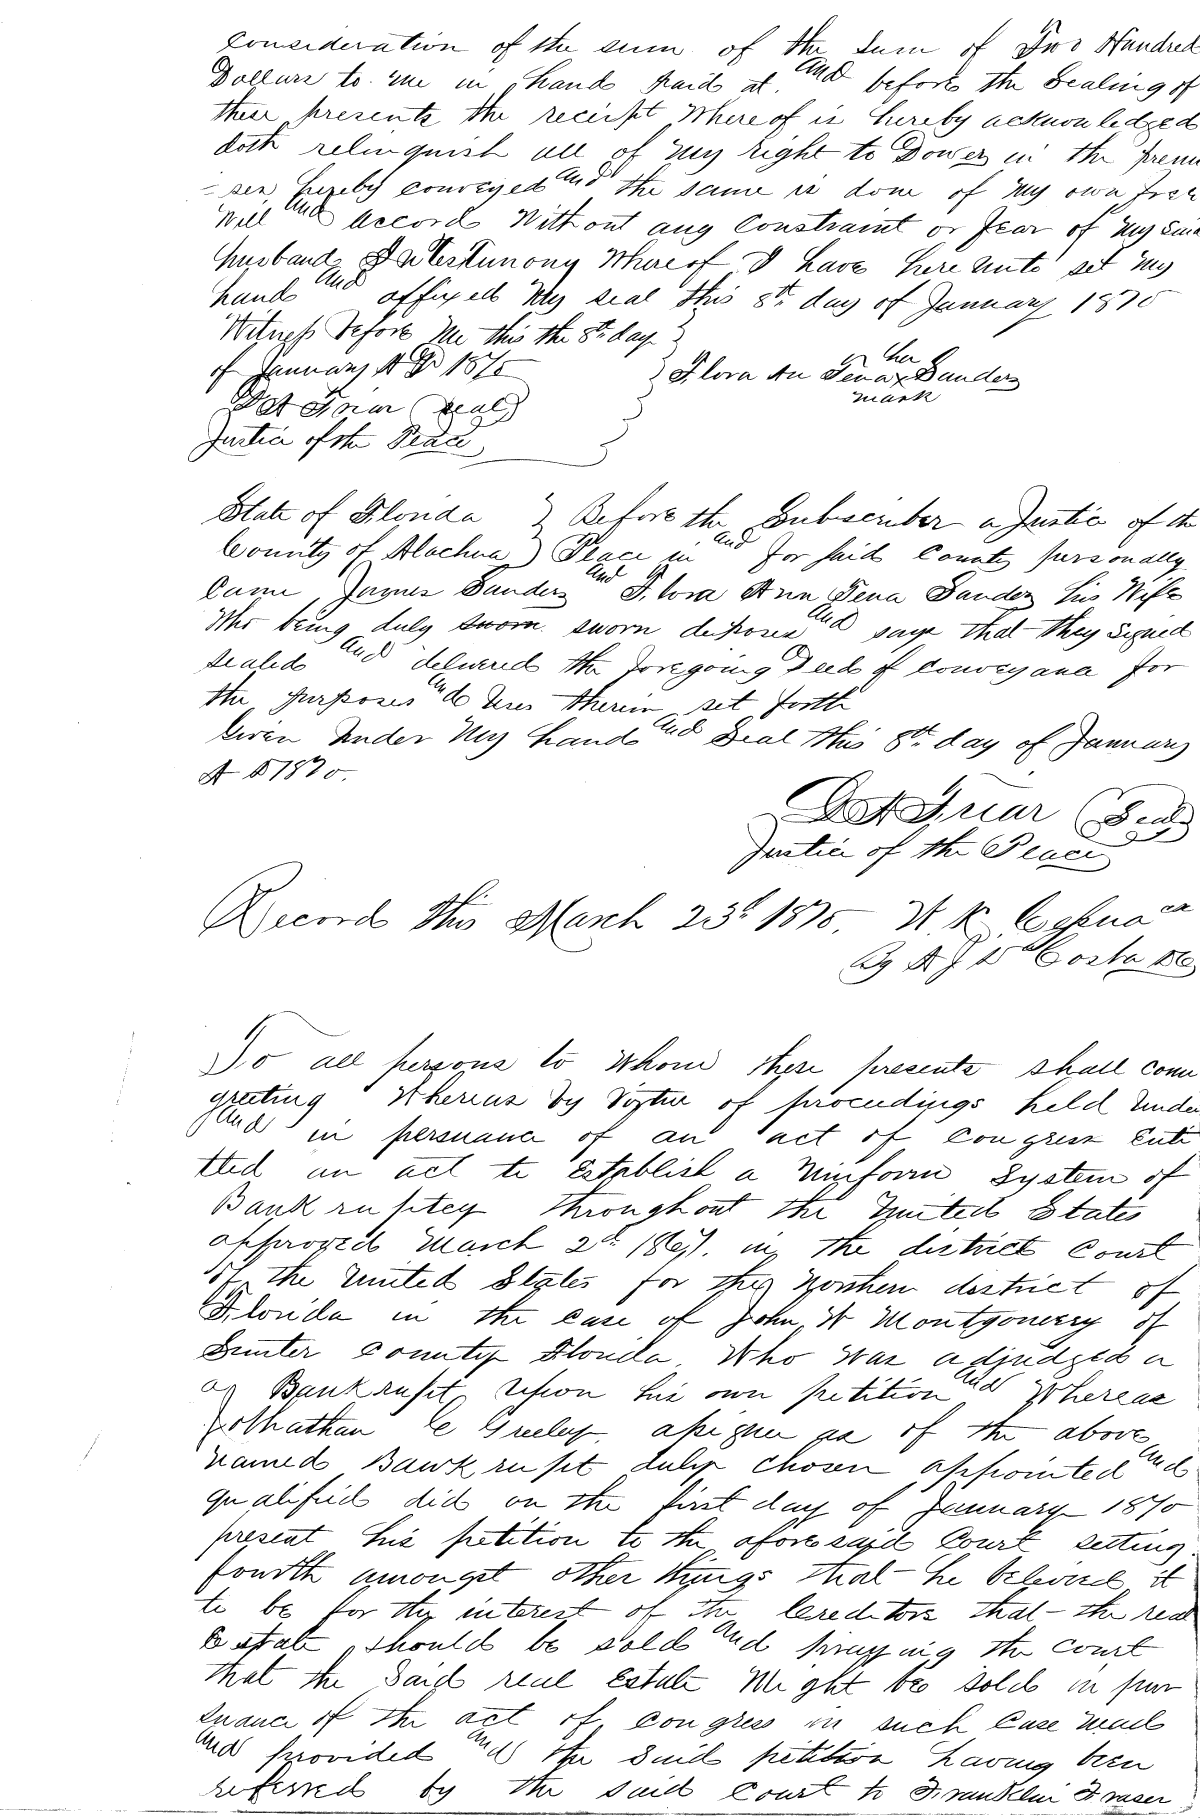 Consideration of the sum of the Sum of Two Hundred
Dollars to me in hand paid at and before the Sealing of
these presents the receipt Whereof is hereby acknowledged
doth relinquish all of My right to Dower in the premi
- ses hereby conveyed and the same is done of My own free
Will and Accord Without any Constraint or Fear of My said
husband In testimony Whereof I have here unto set My
hand and affixed My seal this 8th day of January 1870
Witness before Me this the 8th day
of January A D 1870
D A Friar (seal)
Justice of the Peace
her
Flora An Tena x Sanders
mark
State of Florida } Before the Subscriber a Justice of the
County of Alachua } Peace in and for said County personally
Came James Sanders and Flora Ann Tena Sanders his Wife
Who being duly sworn sworn deposes and says that they signed
sealed and delivered the foregoing Deed of Conveyance for
the purposes and Uses therein set forth
Given Under My hand and Seal this 8th day of January
A D 1870.
D A Friar (Seal)
Justice of the Peace
Record this March 23d 1870. W. K. Cessna
By A J Da Costa DC
To all persons to Whom these presents shall come
greeting Whereas by Virtue of proceedings held Under
and in persuance of an act of Congress Enti
tled an act to Establish a Uniform System of
Bankruptcy throughout the United States
approved March 2d 1867. in the district Court
of the United States for the Northern district of
Florida in the case of John W Montgomery of
Sumter County Florida. Who was adjudged a
a Bankrupt Upon his own petition and Whereas
Johnathan C Greeley assignee as of the above
named Bankrupt duly chosen appointed and
qualified did on the first day of January 1870
present his petition to the aforesaid Court setting
fourth amongst other things that he beleived it
to be for the interest of the Creditors that the real
Estate should be sold and praying the Court
that the Said real Estate Might be sold in pur
suance of the act of Congress in such Case Made
and provided and the Said petition having been
referred by the said Court to Franklin Fraser